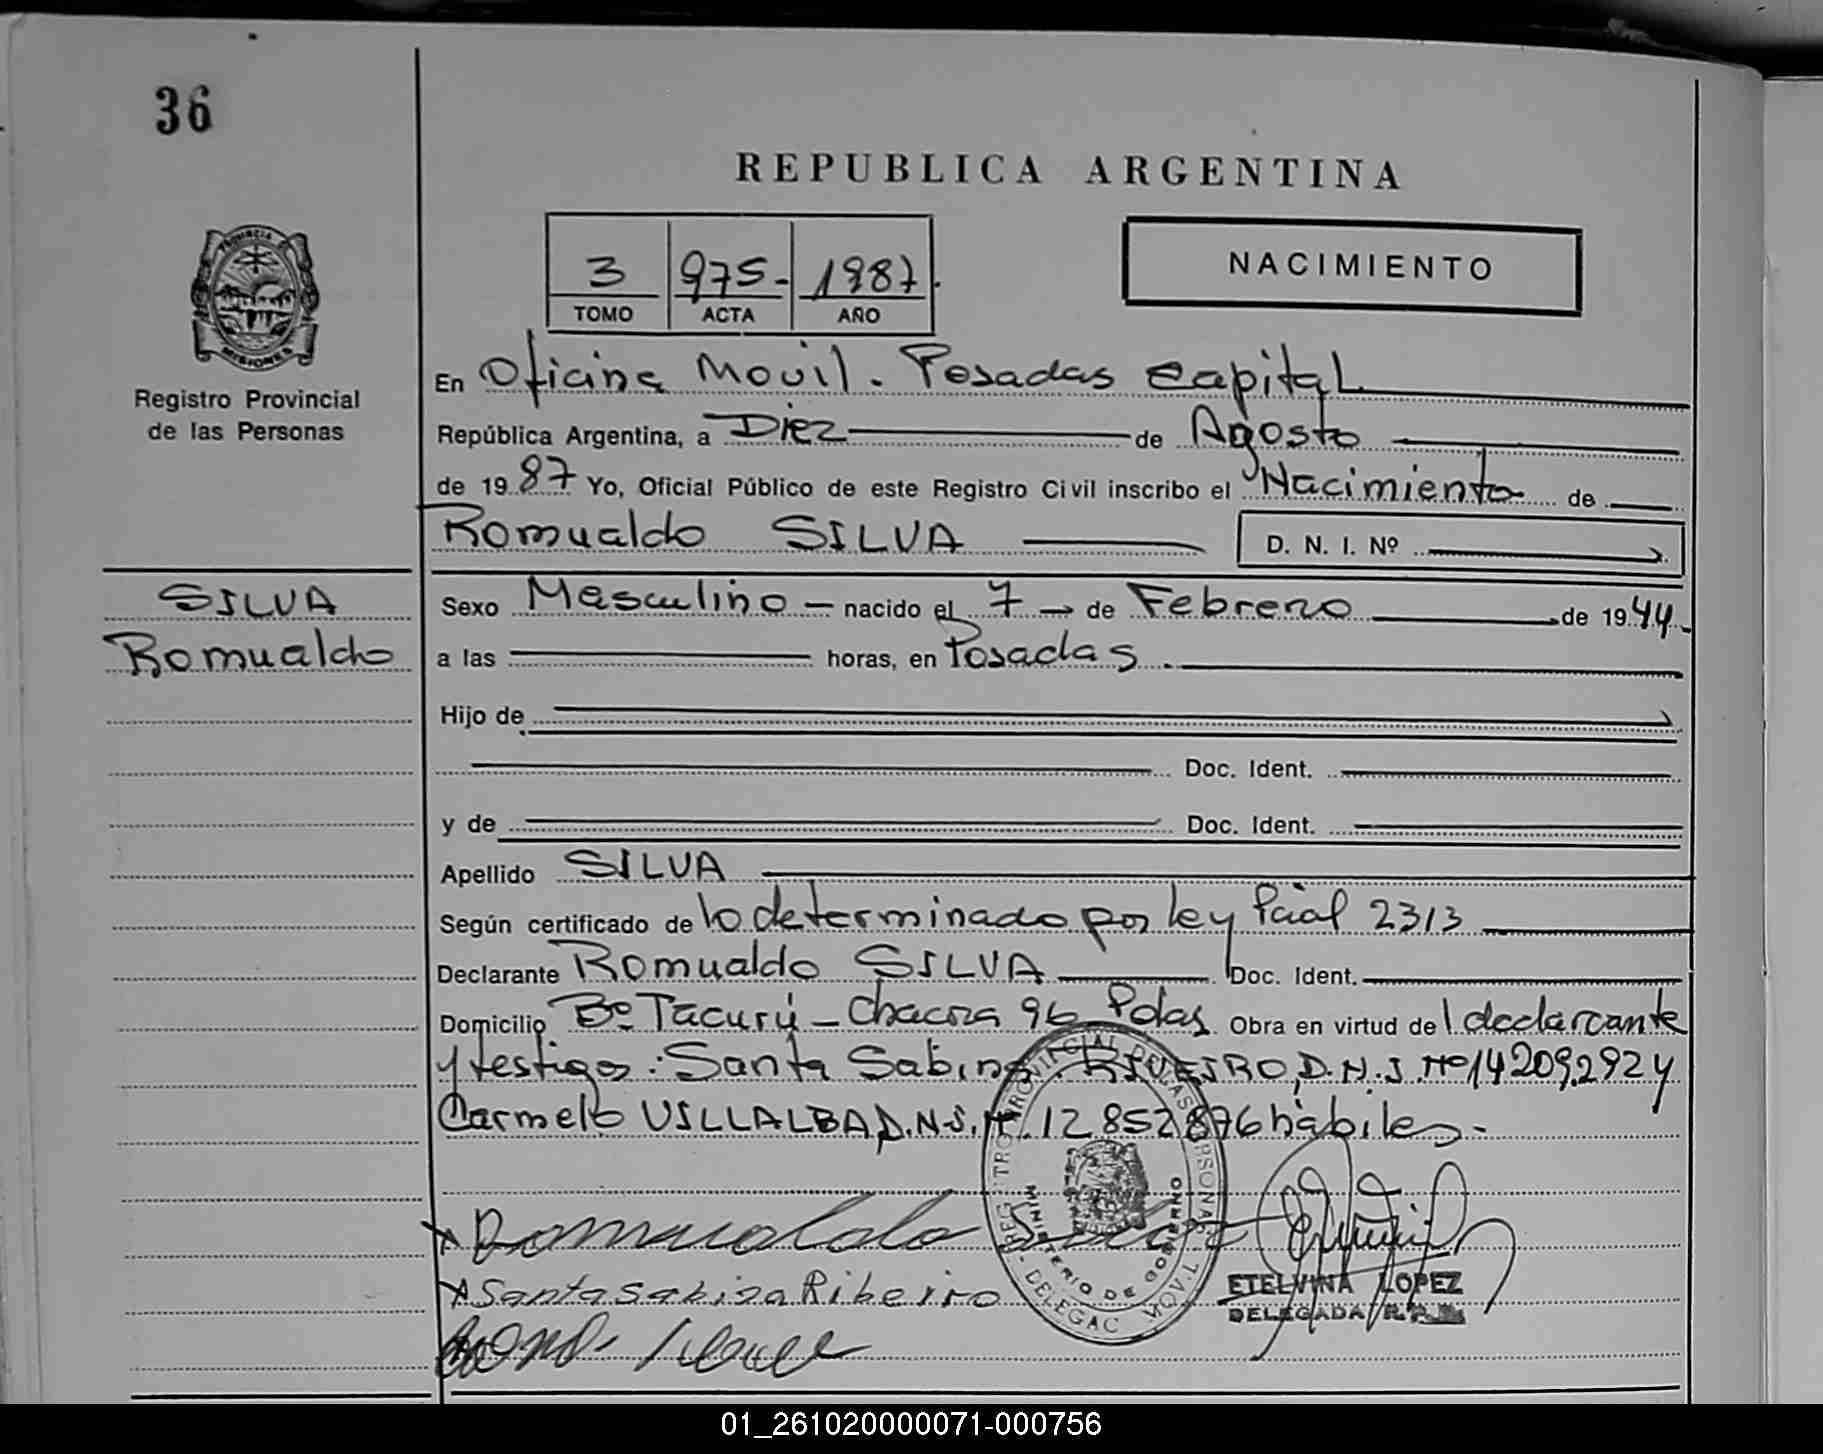 36
REPUBLICA ARGENTINA
3 975.- 1987.
TOMO ACTA AÑO
NACIMIENTO
PROVINCIA DE MISIONES
Registro Provincial
de las Personas
En Oficina Movil. Posadas Capital
República Argentina, a Diez de Agosto
de 1987 Yo, Oficial Público de este Registro Civil inscribo el Nacimiento de
Romualdo SILVA D. N. I. Nº
SILVA
Romualdo
Sexo Masculino nacido el 7 de Febrero de 1944.
a las horas, en Posadas.
Hijo de
Doc. Ident.
y de Doc. Ident.
Apellido SILVA
Según certificado de lo determinado por ley Pcial 2313
Declarante Romualdo SILVA Doc. Ident.
Domicilio Bº Tacurú - Chacra 96 Pdas Obra en virtud de l declarante
y testigos: Santa Sabina RIVEIRO, D.N.I. Nº 14209.292 y
Carmelo VILLALBA D.N.I. Nº 12.852.876 hábiles.-
Romualdo Silva
Santa Sabina Ribeiro
REGISTRO PROVINCIAL DE LAS PERSONAS
MINISTERIO DE GOBIERNO
DELEGAC MOVIL
ETELVINA LOPEZ
DELEGADA R.P.
01_261020000071-000756